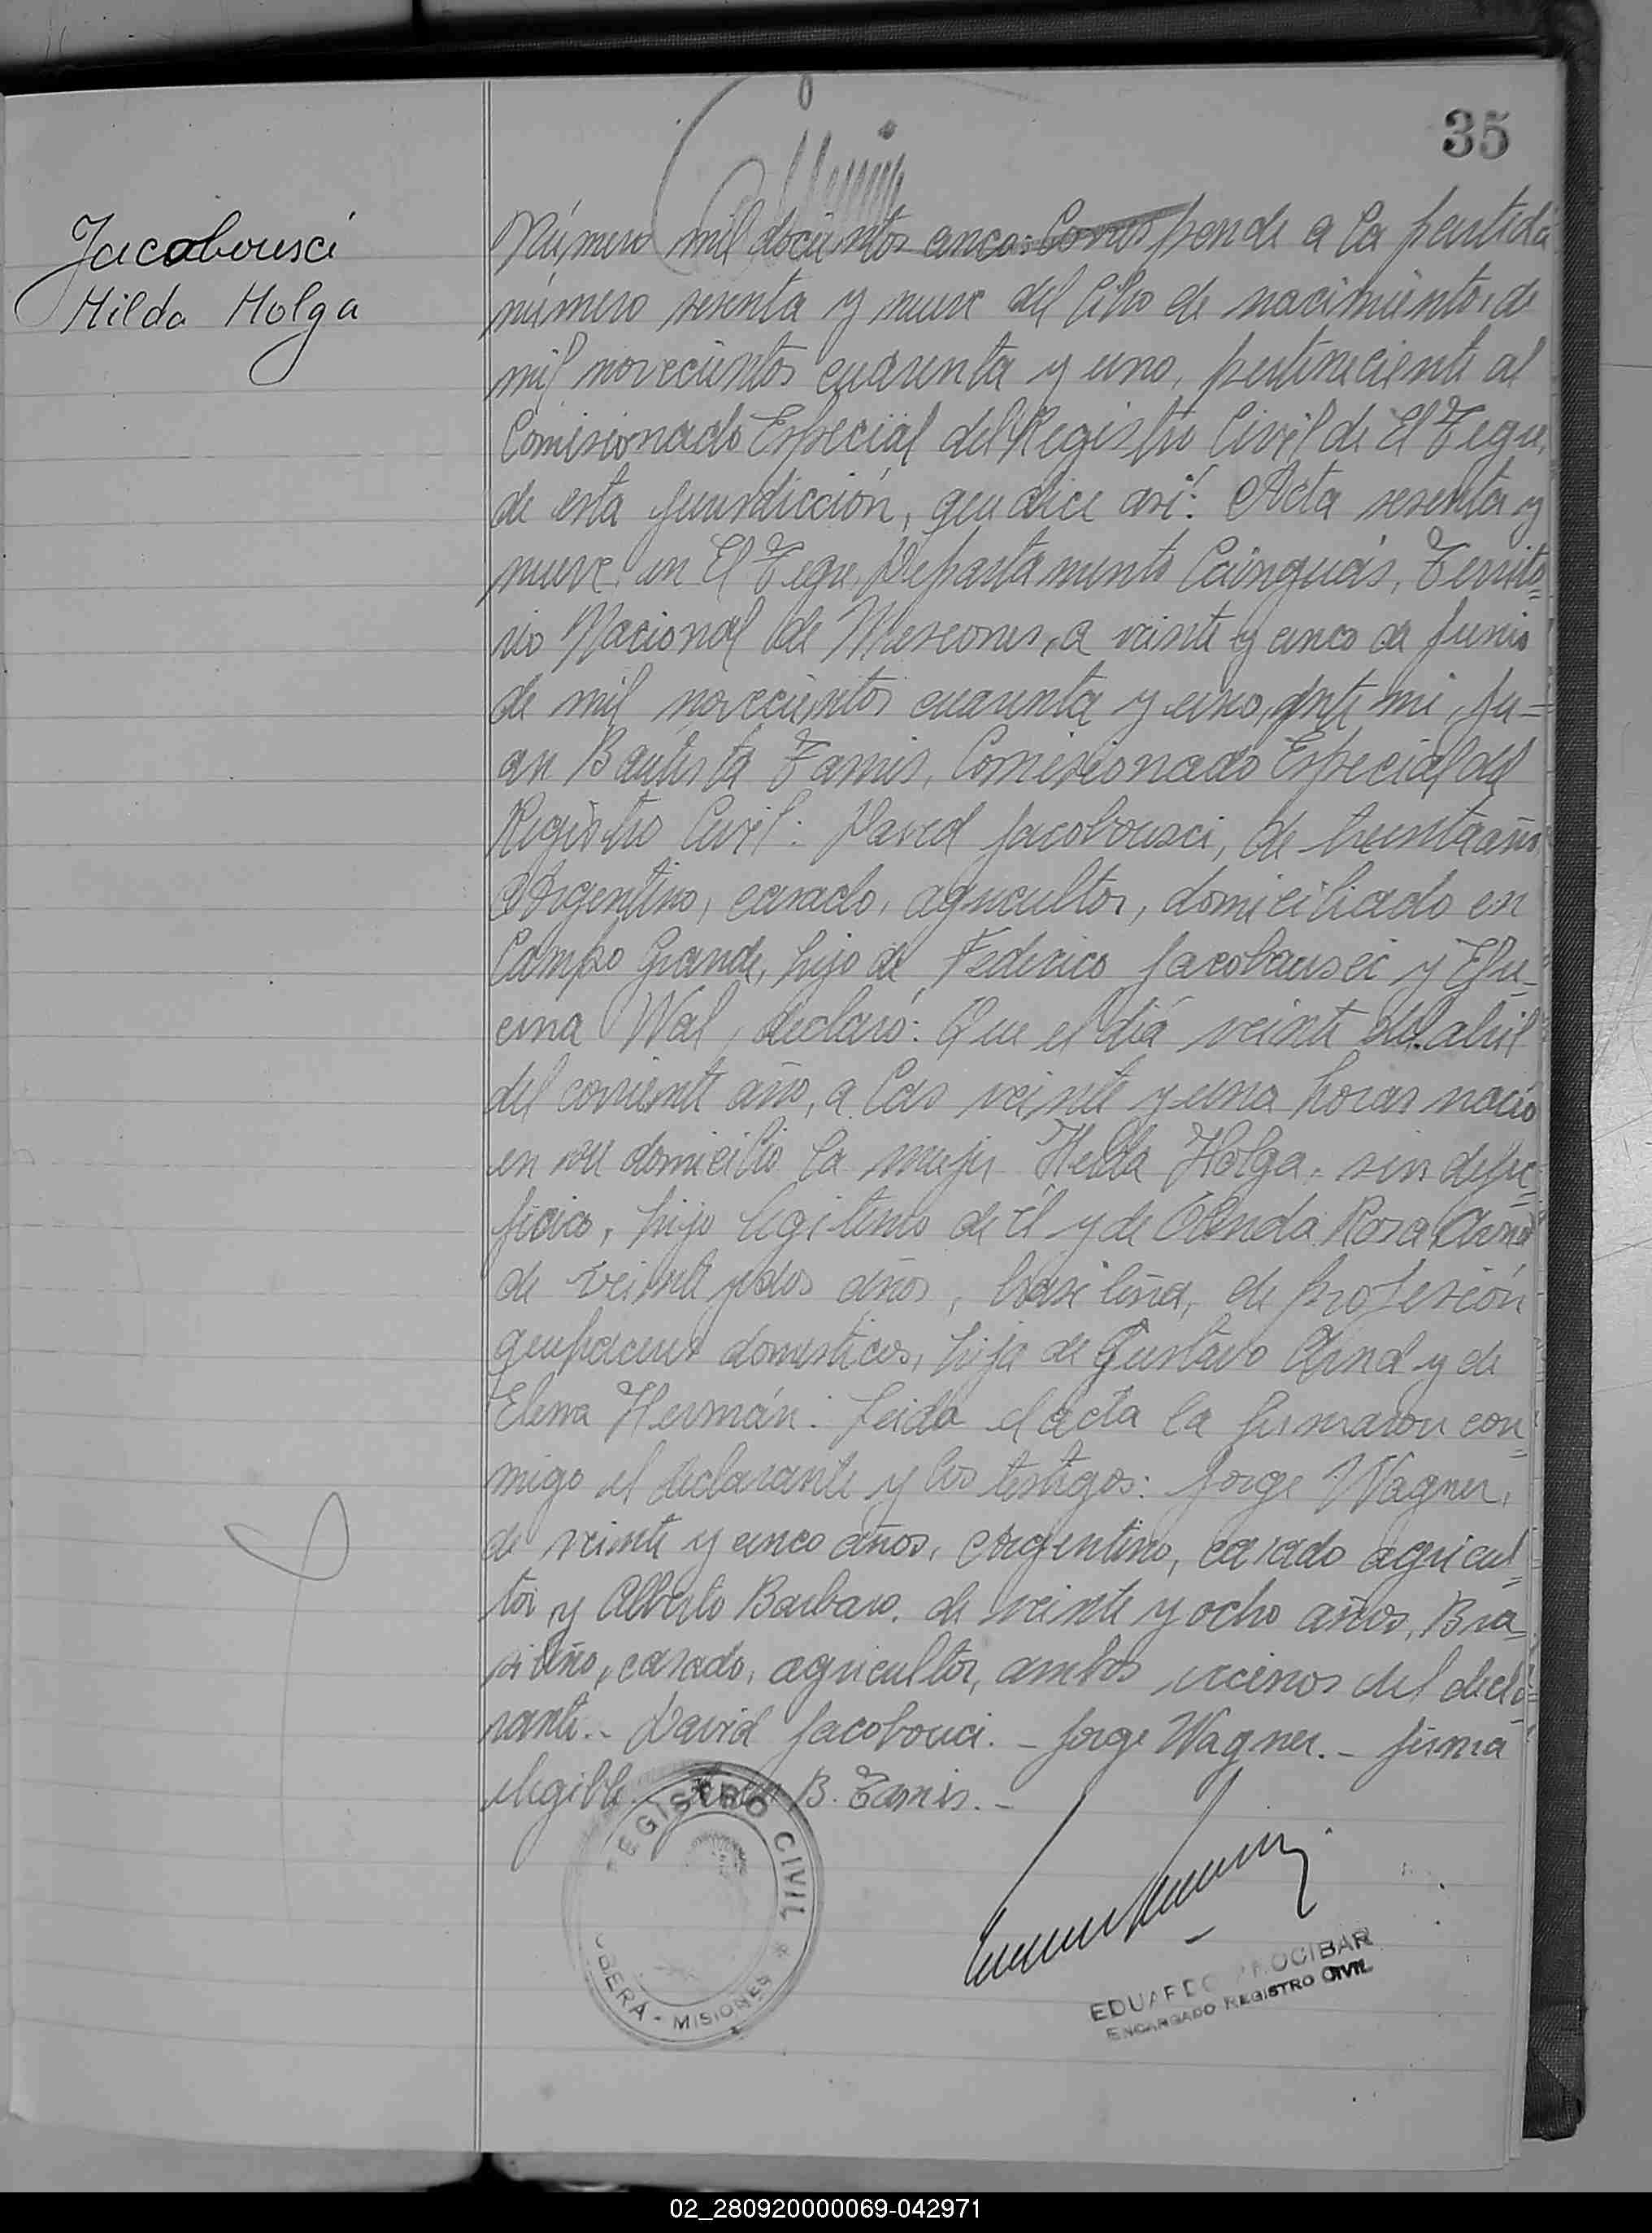 35
Jacobousci
Hilda Holga
Número mil docientos cinco: Corresponde a la partida
número sesenta y nueve del libro de nacimientos de
mil novecientos cuarenta y uno, perteneciente al
Comisionado Especial del Registro Civil de El Tigre,
de esta jurisdicción, que dice así: Acta sesenta y
nueve: en El Tigre, Departamento Cainguás, Territo=
rio Nacional de Misiones, a veinte y cinco de Junio
de mil novecientos cuarenta y uno, ante mi, Ju=
an Bautista Tamis, Comisionado Especial del
Registro Civil: David Jacobousci, de treinta años
Argentino, casado, agricultor, domiciliado en
Campo Grande, hijo de Federico Jacobousci y
Wal, declaró: Que el día veinte de abril
del corriente año, a las veinte y una horas nació
en su domicilio la mujer Hilda Holga, sin
hijo legitimo de él y de Olinda Rosa Arnd
de veinte y dos años, brasileña, de profesión
quehaceres domesticos, hija de Gustavo Arnd y de
Elena Hermán. Leida el acta la firmaron con=
migo el declarante y los testigos: Jorge Wagner,
de veinte y cinco años, Argentino, casado agricul=
tor y Alberto Barbaro, de veinte y ocho años, Bra=
sileño, casado, agricultor, ambos vecinos del decla=
rante.- David Jacobouci. - Jorge Wagner. - firma
ilegible. - Juan B. Tamis. -
REGISTRO CIVIL
OBERA - MISIONES
EDUARDO PROCIBAR
ENCARGADO REGISTRO CIVIL
02_280920000069-042971